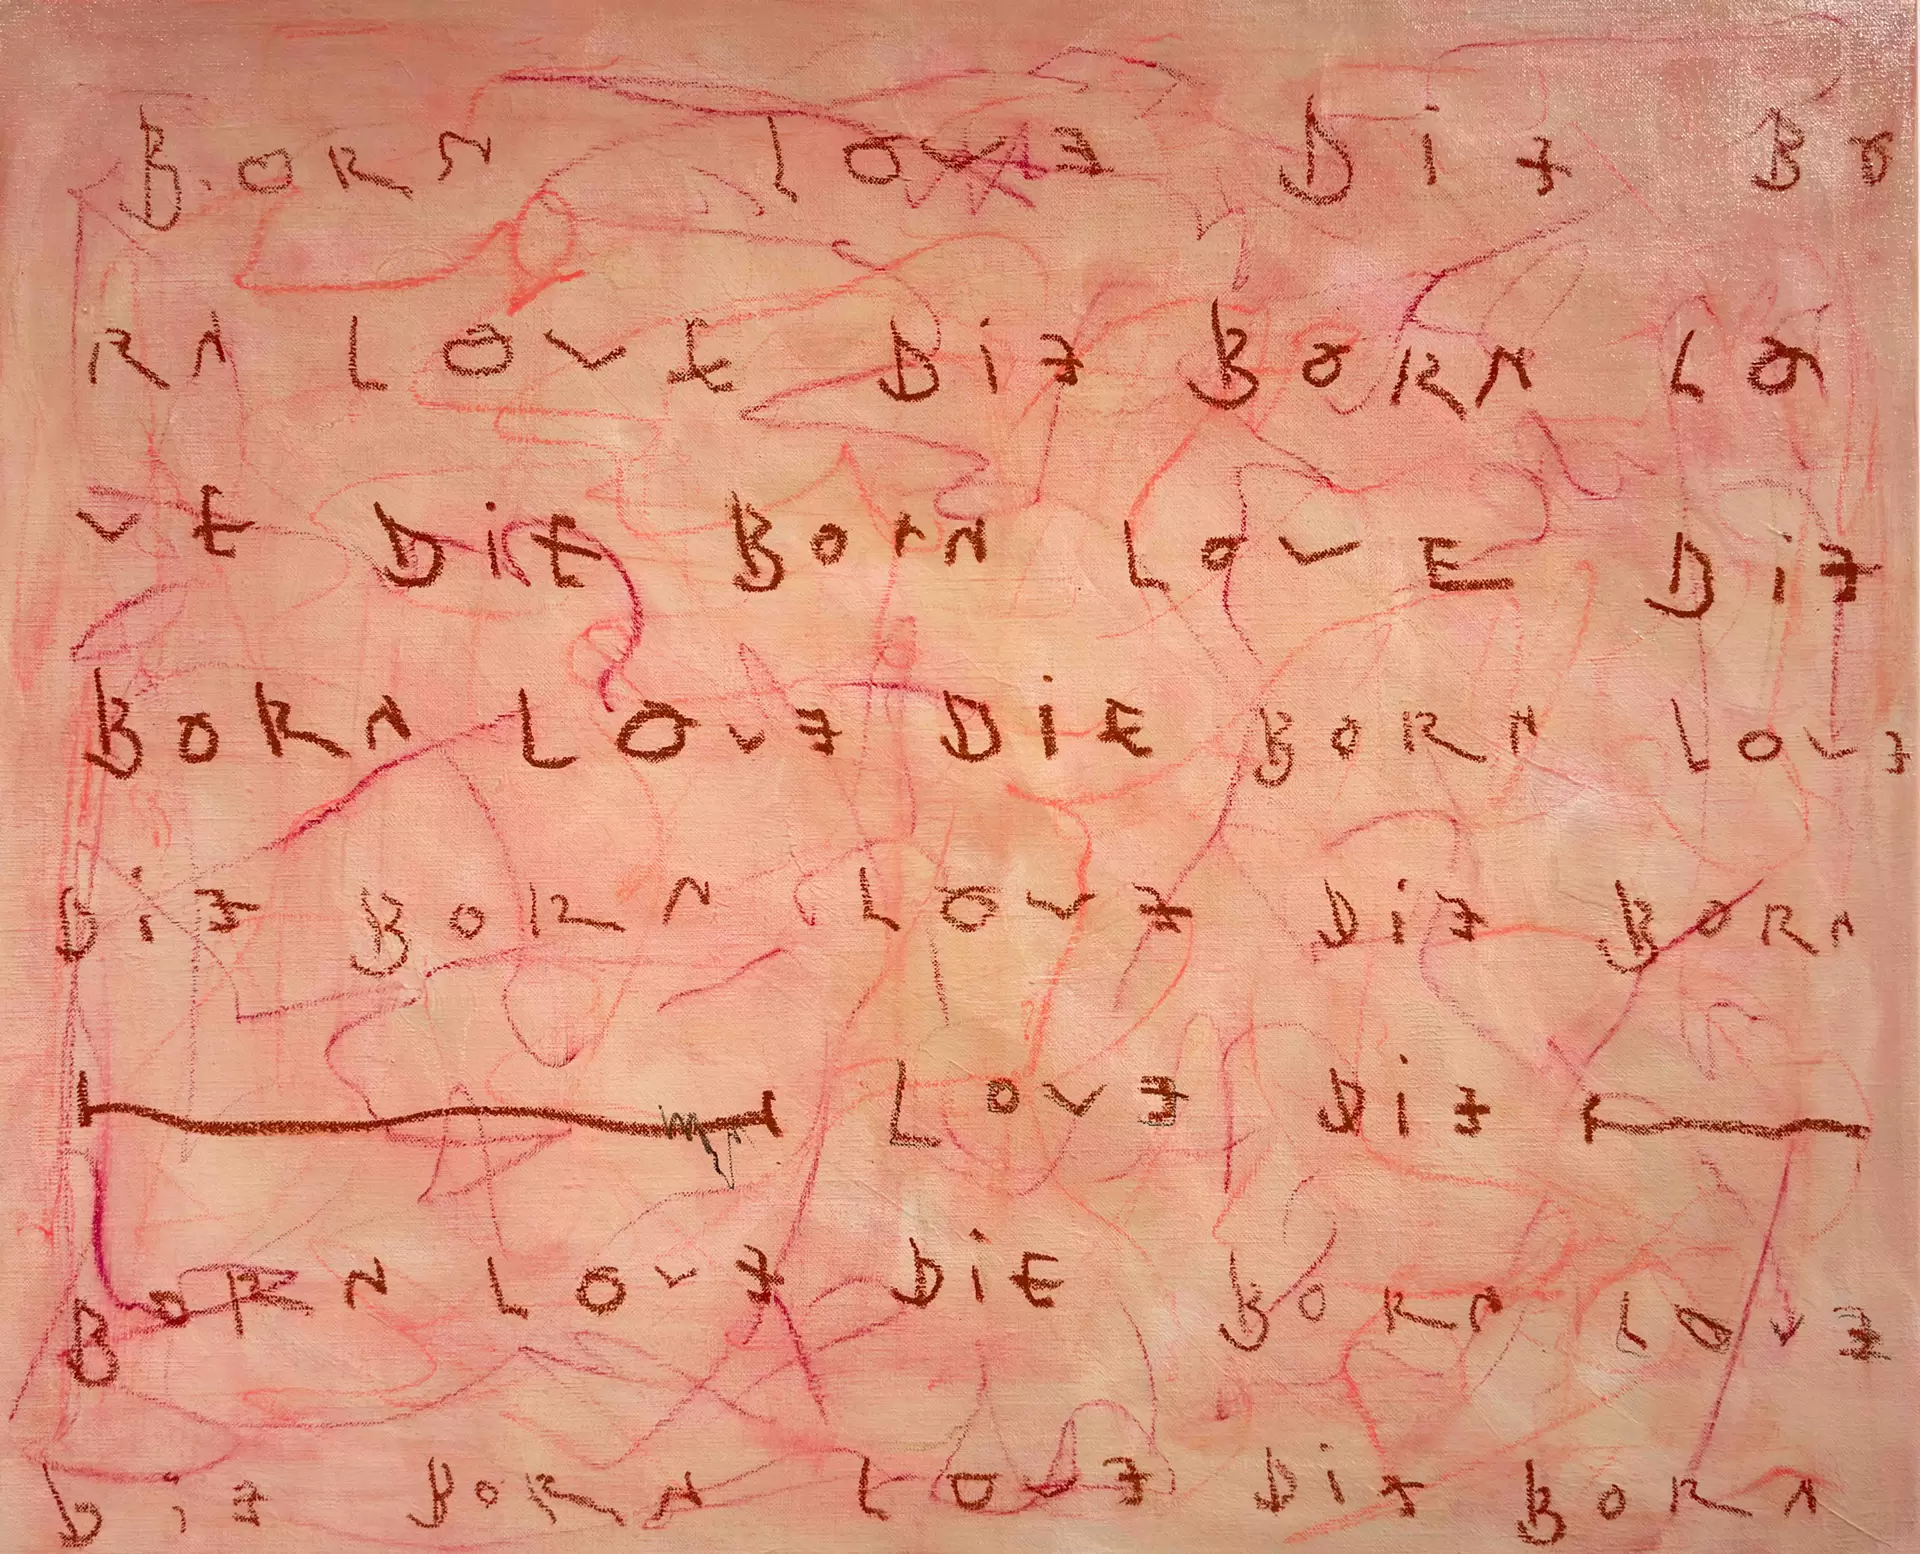 BORN LOVE DiE BO
RN LOVE DiE BORN LO
VE DiE BOrN LOVE DiE
BORN LOVE DiE BORN LOVE
DiE BORN LOVE DiE BORN
LOVE DiE
BORN LOVE DiE BORN LOVE
DiE BORN LOVE DiE BORN